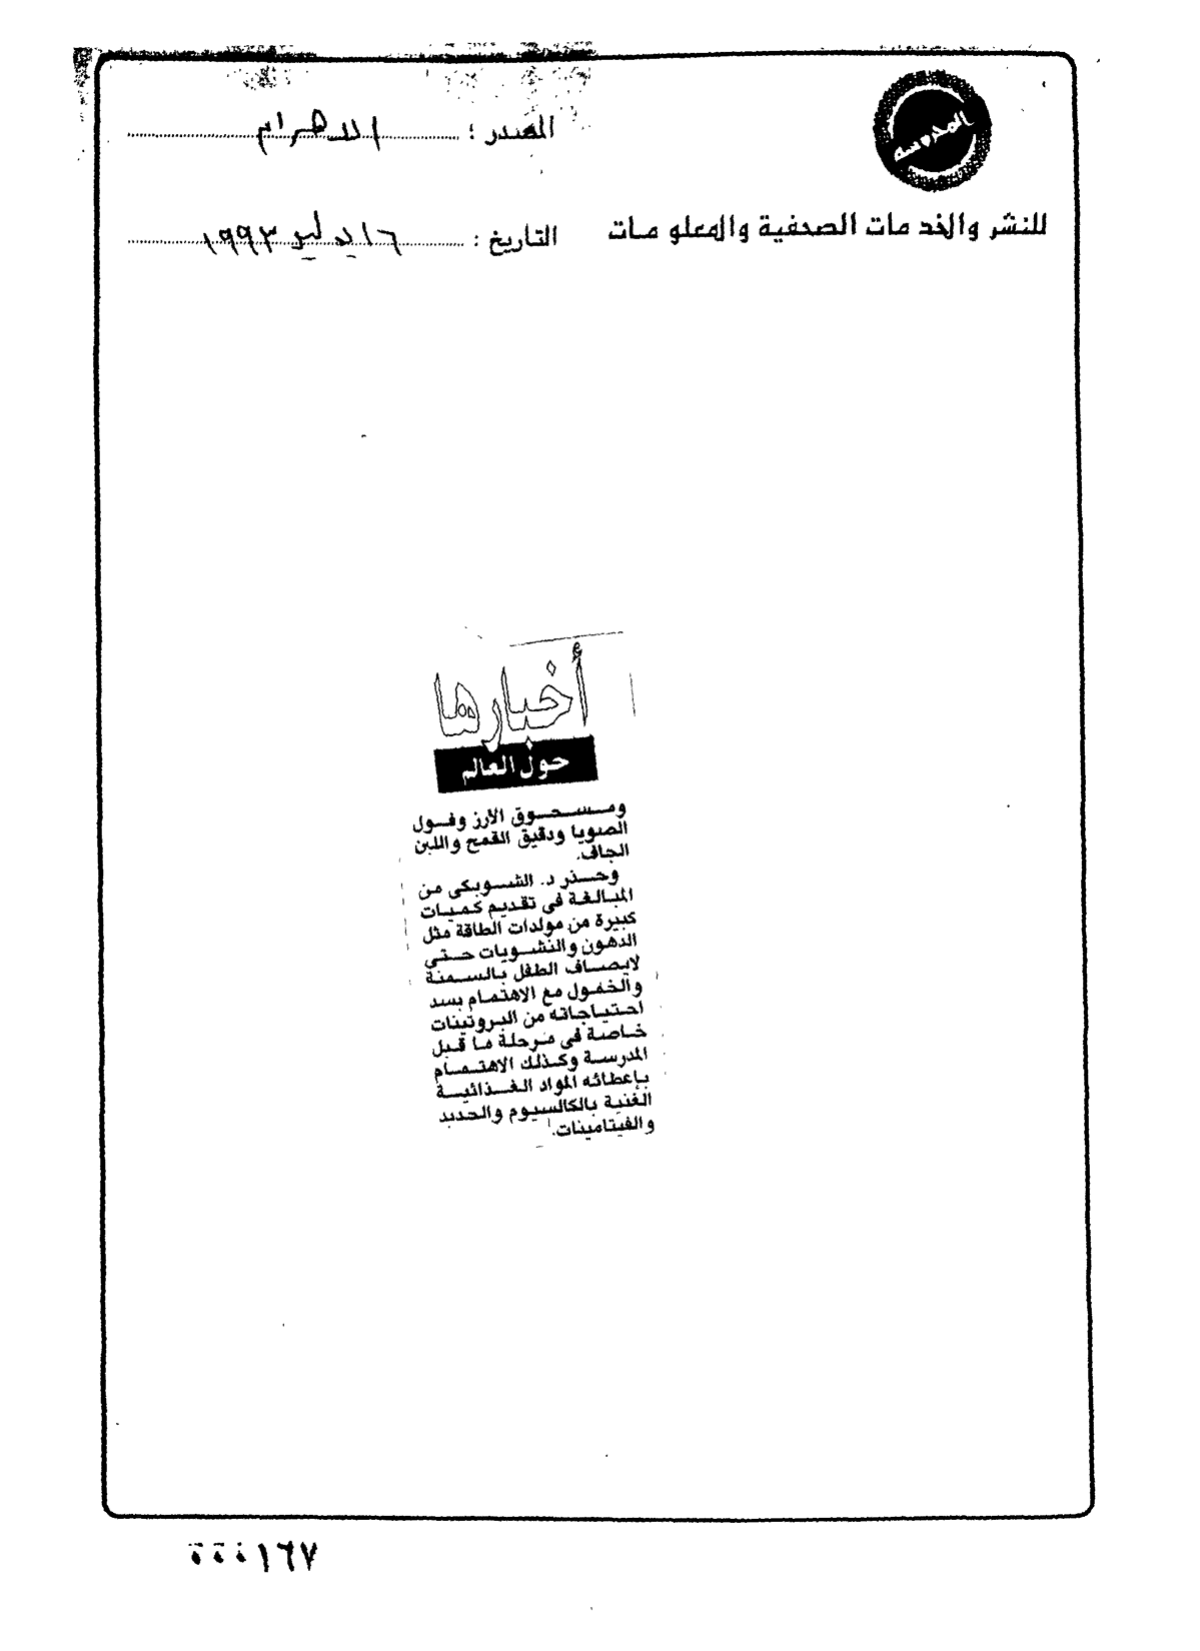 المحروسة
للنشر والخدمات الصحفية والمعلومات
المصدر : الاهرام
التاريخ : ١٦ يوليو ١٩٩٣
أخبارها
حول العالم
ومسحوق الأرز وفول
الصويا ودقيق القمح واللبن
الجاف.
وحذر د. الشوبكى من
المبالغة فى تقديم كميات
كبيرة من مولدات الطاقة مثل
الدهون والنشويات حتى
لايصاف الطفل بالسمنة
والخمول مع الاهتمام بسد
احتياجاته من البروتينات
خاصة فى مرحلة ما قبل
المدرسة وكذلك الاهتمام
بإعطائه المواد الغذائية
الغنية بالكالسيوم والحديد
والفيتامينات.
١٦٧